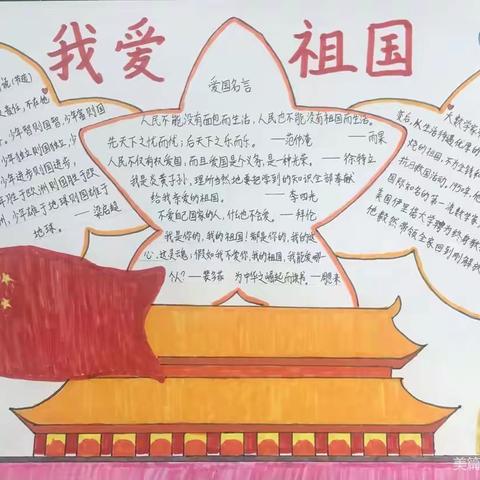 我爱 祖国
说(节选)
责任,不在他
少年智则国智,少年富则国
少年独立则国独立,少
少年进步则国进步,
胜于欧洲则国胜于欧
洲,少年雄于地球则国雄于
地球。——梁启超
爱国名言
人民不能没有面包而生活,人民也不能没有祖国而生活。
——雨果
先天下之忧而忧,后天下之乐而乐。——范仲淹
人民不仅有权爱国,而且爱国是个义务,是一种光荣。——徐特立
我是炎黄子孙,理所当然地要把学到的知识全部奉献
给我亲爱的祖国。——李四光
不爱自己国家的人,什么也不会爱。——拜伦
我是你的,我的祖国!都是你的,我的这
心,这灵魂;假如我不爱你,我的祖国,我能爱哪一
个人?——裴多菲 为中华之崛起而读书。——周恩来
大数学家
抗日救国活动。1950年,他
国际知名的第一流数学家
美国伊里诺大学聘为终身教
他毅然带领全家回到刚解放
美篇